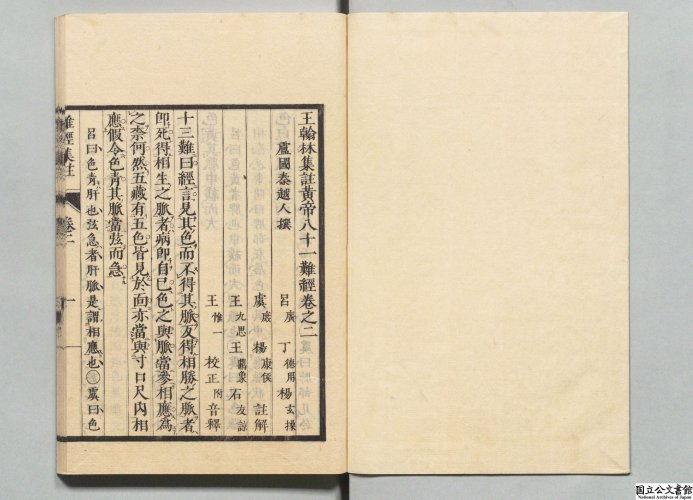 王翰林集註黃帝八十一難經卷之二
盧國秦越人撰
呂廣 丁德用 楊玄操
虞庶 楊康侯 註解
王九思 王鼎象 石友諒
王惟一 校正附音釋
十三難曰經言見其色而不得其脈反得相勝之脈者
即死得相生之脈者病即自已色之與脈當參相應爲
之柰何然五藏有五色皆見於面亦當與寸口尺內相
應假令色青其脈當弦而急
呂曰色青肝也弦急者肝脈是謂相應也 虞曰色
難經集註 卷二 一
国立公文書館
National Archives of Japan